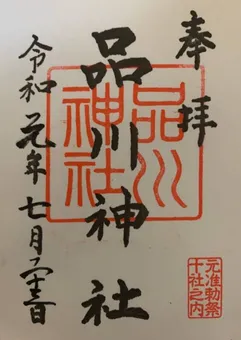 奉拝
品川神社
令和元年七月二十三日
品川
神社
元准勅祭
十社之内